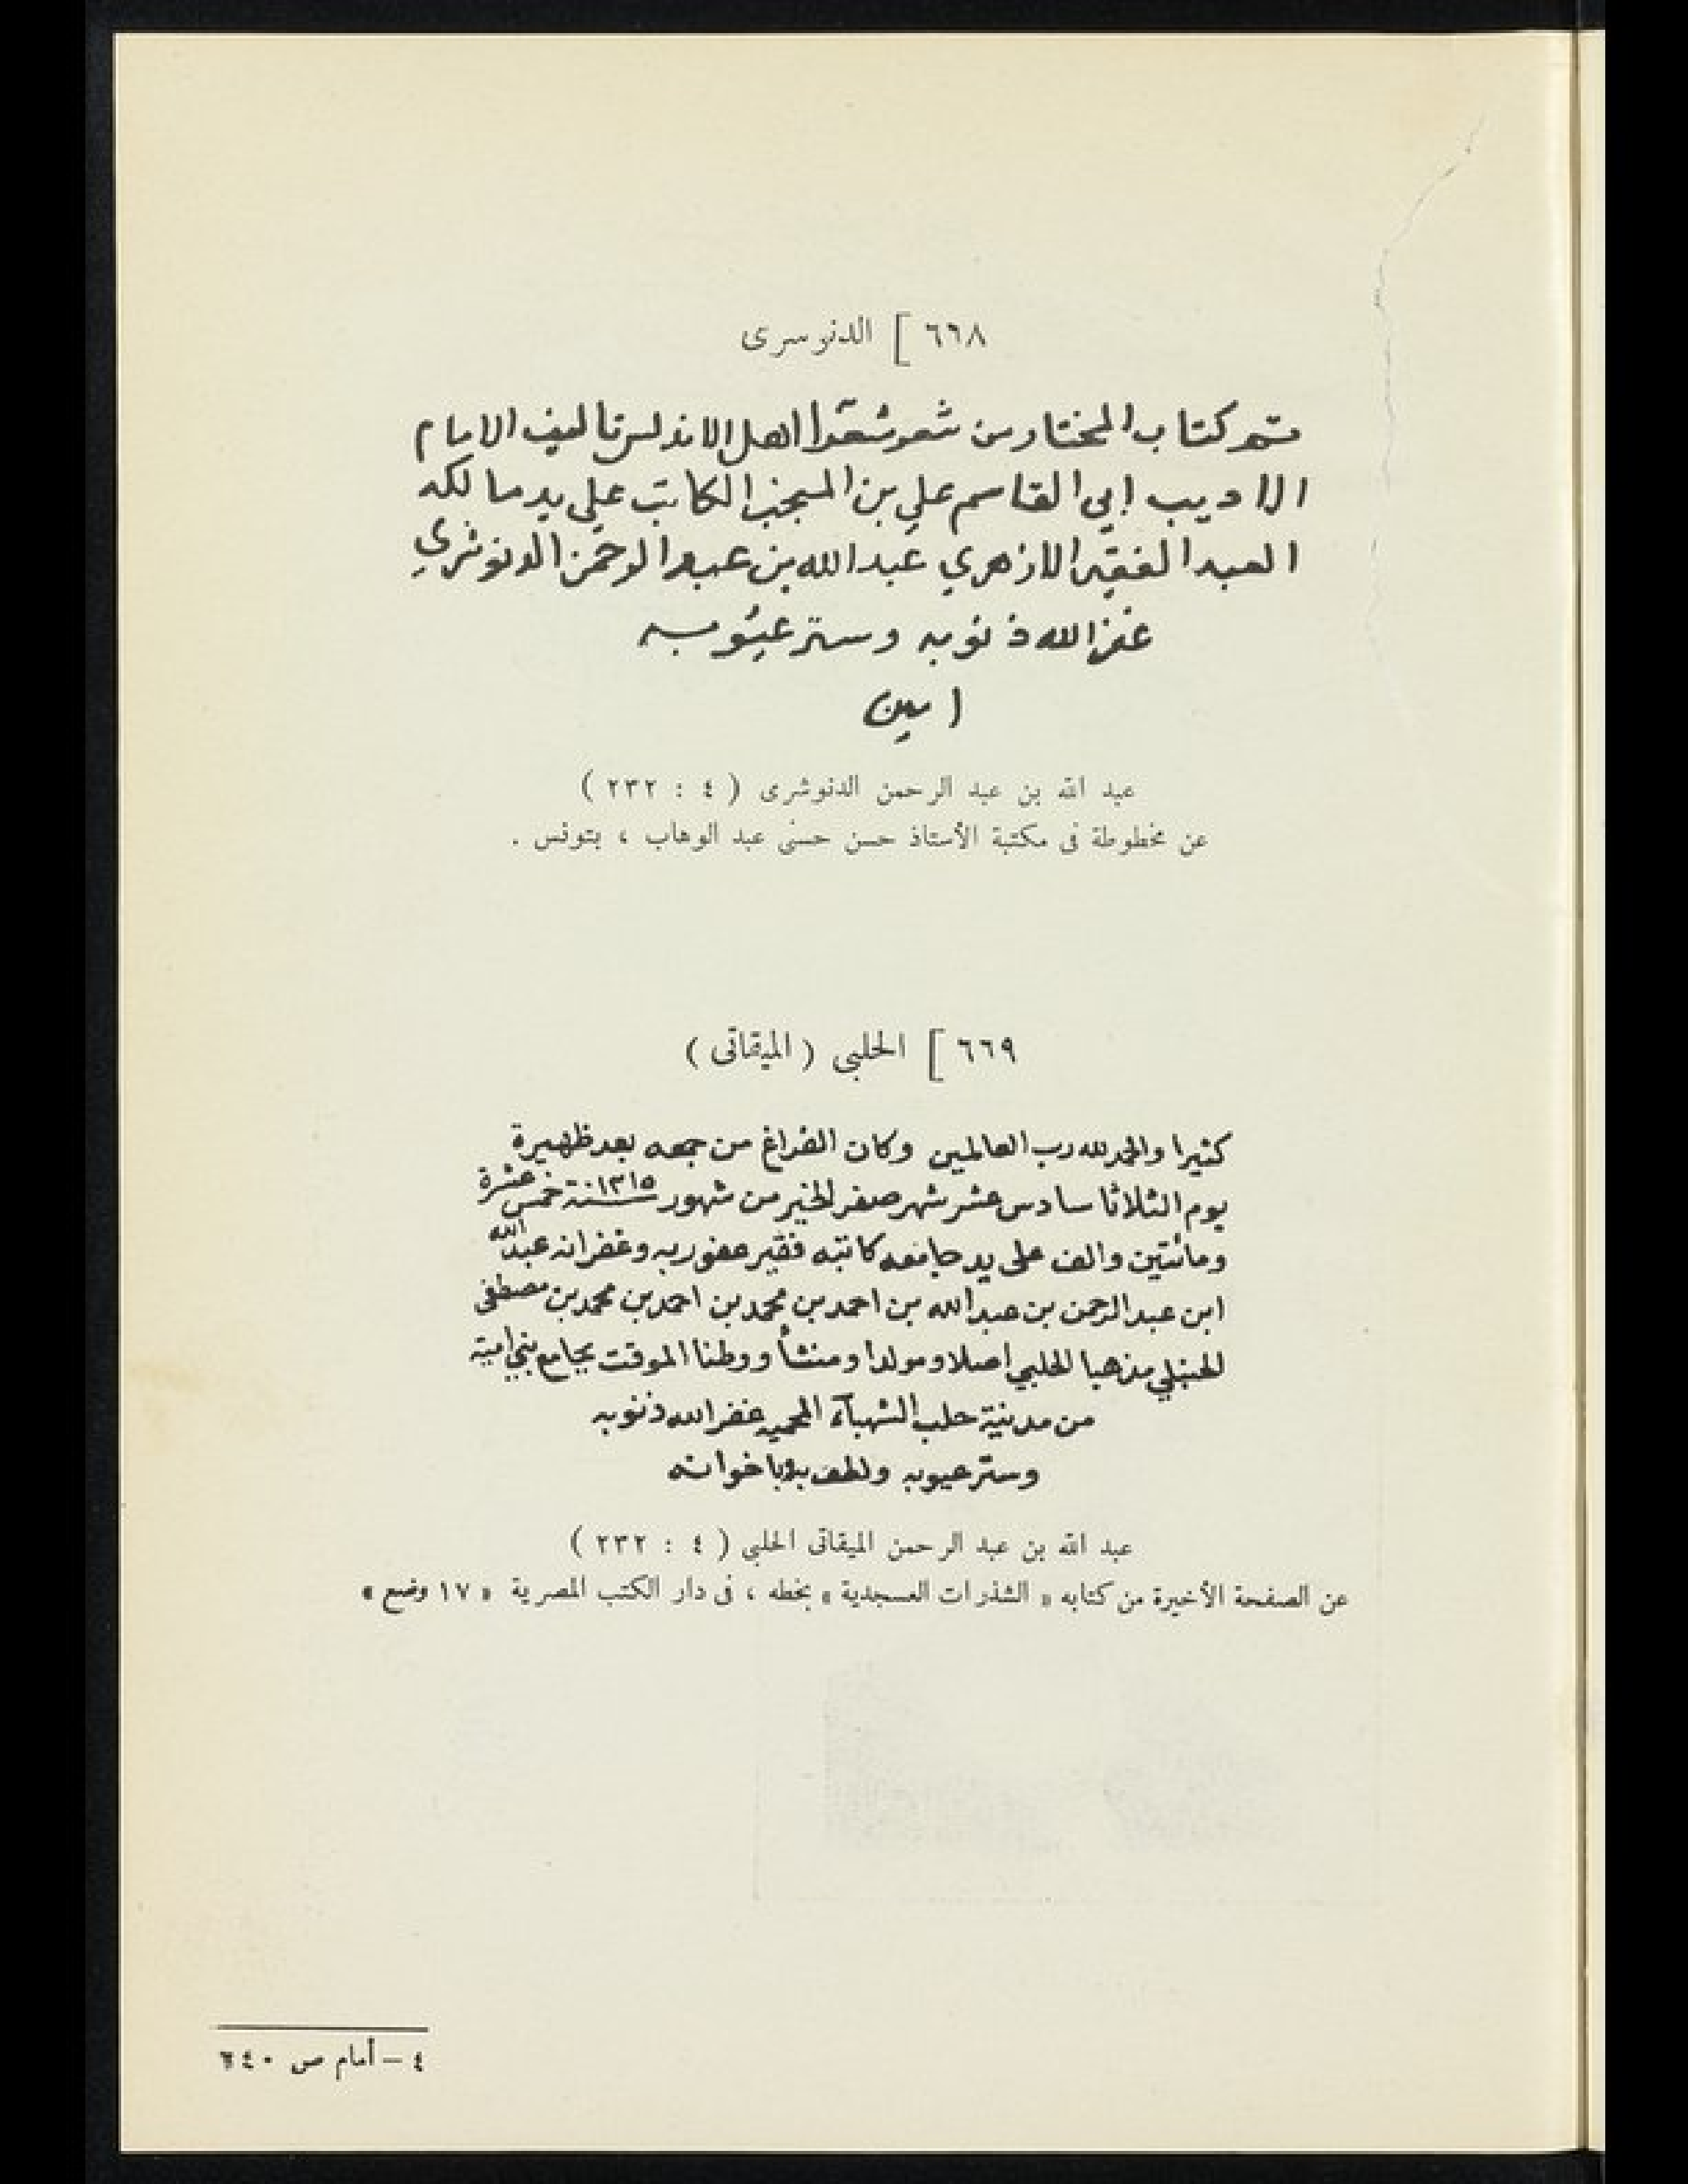 ٦٦٨ [ الدنوسرى
تم كتاب المختار من شعر شعرآ اهل الاندلس تاليف الامام
الاديب ابي القاسم علي بن المنجب الكاتب علي يد مالكه
العبد الفقير الازهري عبدالله بن عبد الرحمن الدنوشري
غفر الله ذنوبه وستر عيوبه
امين
عبد الله بن عبد الرحمن الدنوشرى ( ٤ : ٢٣٢ )
عن مخطوطة فى مكتبة الأستاذ حسن حسنى عبد الوهاب ، بتونس .
٦٦٩ [ الحلبى ( الميقاتى )
كثيرا والحمد لله رب العالمين وكان الفراغ من جمعه بعد ظهيرة
يوم الثلاثا سادس عشر شهر صفر الخير من شهور سنة ١٢١٥ خمس عشرة
ومائتين والف على يد جامعه كاتبه فقير عفو ربه وغفرانه عبد الله
ابن عبد الرحمن بن عبد الله بن احمد بن محمد بن احمد بن محمد بن مصطفى
الحنبلي مذهبا الحلبي اصلا ومولدا ومنشأ ووطنا الموقت بجامع بني امية
من مدينة حلب الشهبآء المحمية غفر الله ذنوبه
وستر عيوبه ولطف به وباخوانه
عبد الله بن عبد الرحمن الميقاتى الحلبى ( ٤ : ٢٣٢ )
عن الصفحة الأخيرة من كتابه « الشذرات العسجدية » بخطه ، فى دار الكتب المصرية « ١٧ وضع »
٤ – أمام ص ٦٤٠